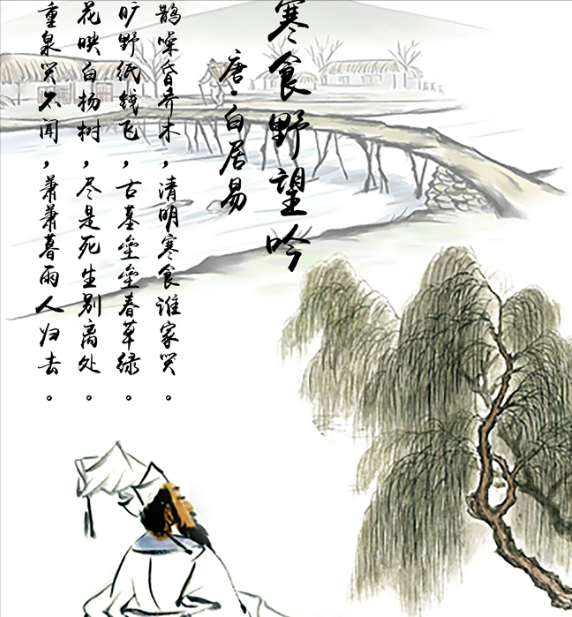 寒食野望吟
唐·白居易
鹊噪昏乔木，清明寒食谁家哭。
旷野纸钱飞，古墓垒垒春草绿。
花映白杨树，尽是死生别离处。
重泉哭不闻，萧萧暮雨人归去。